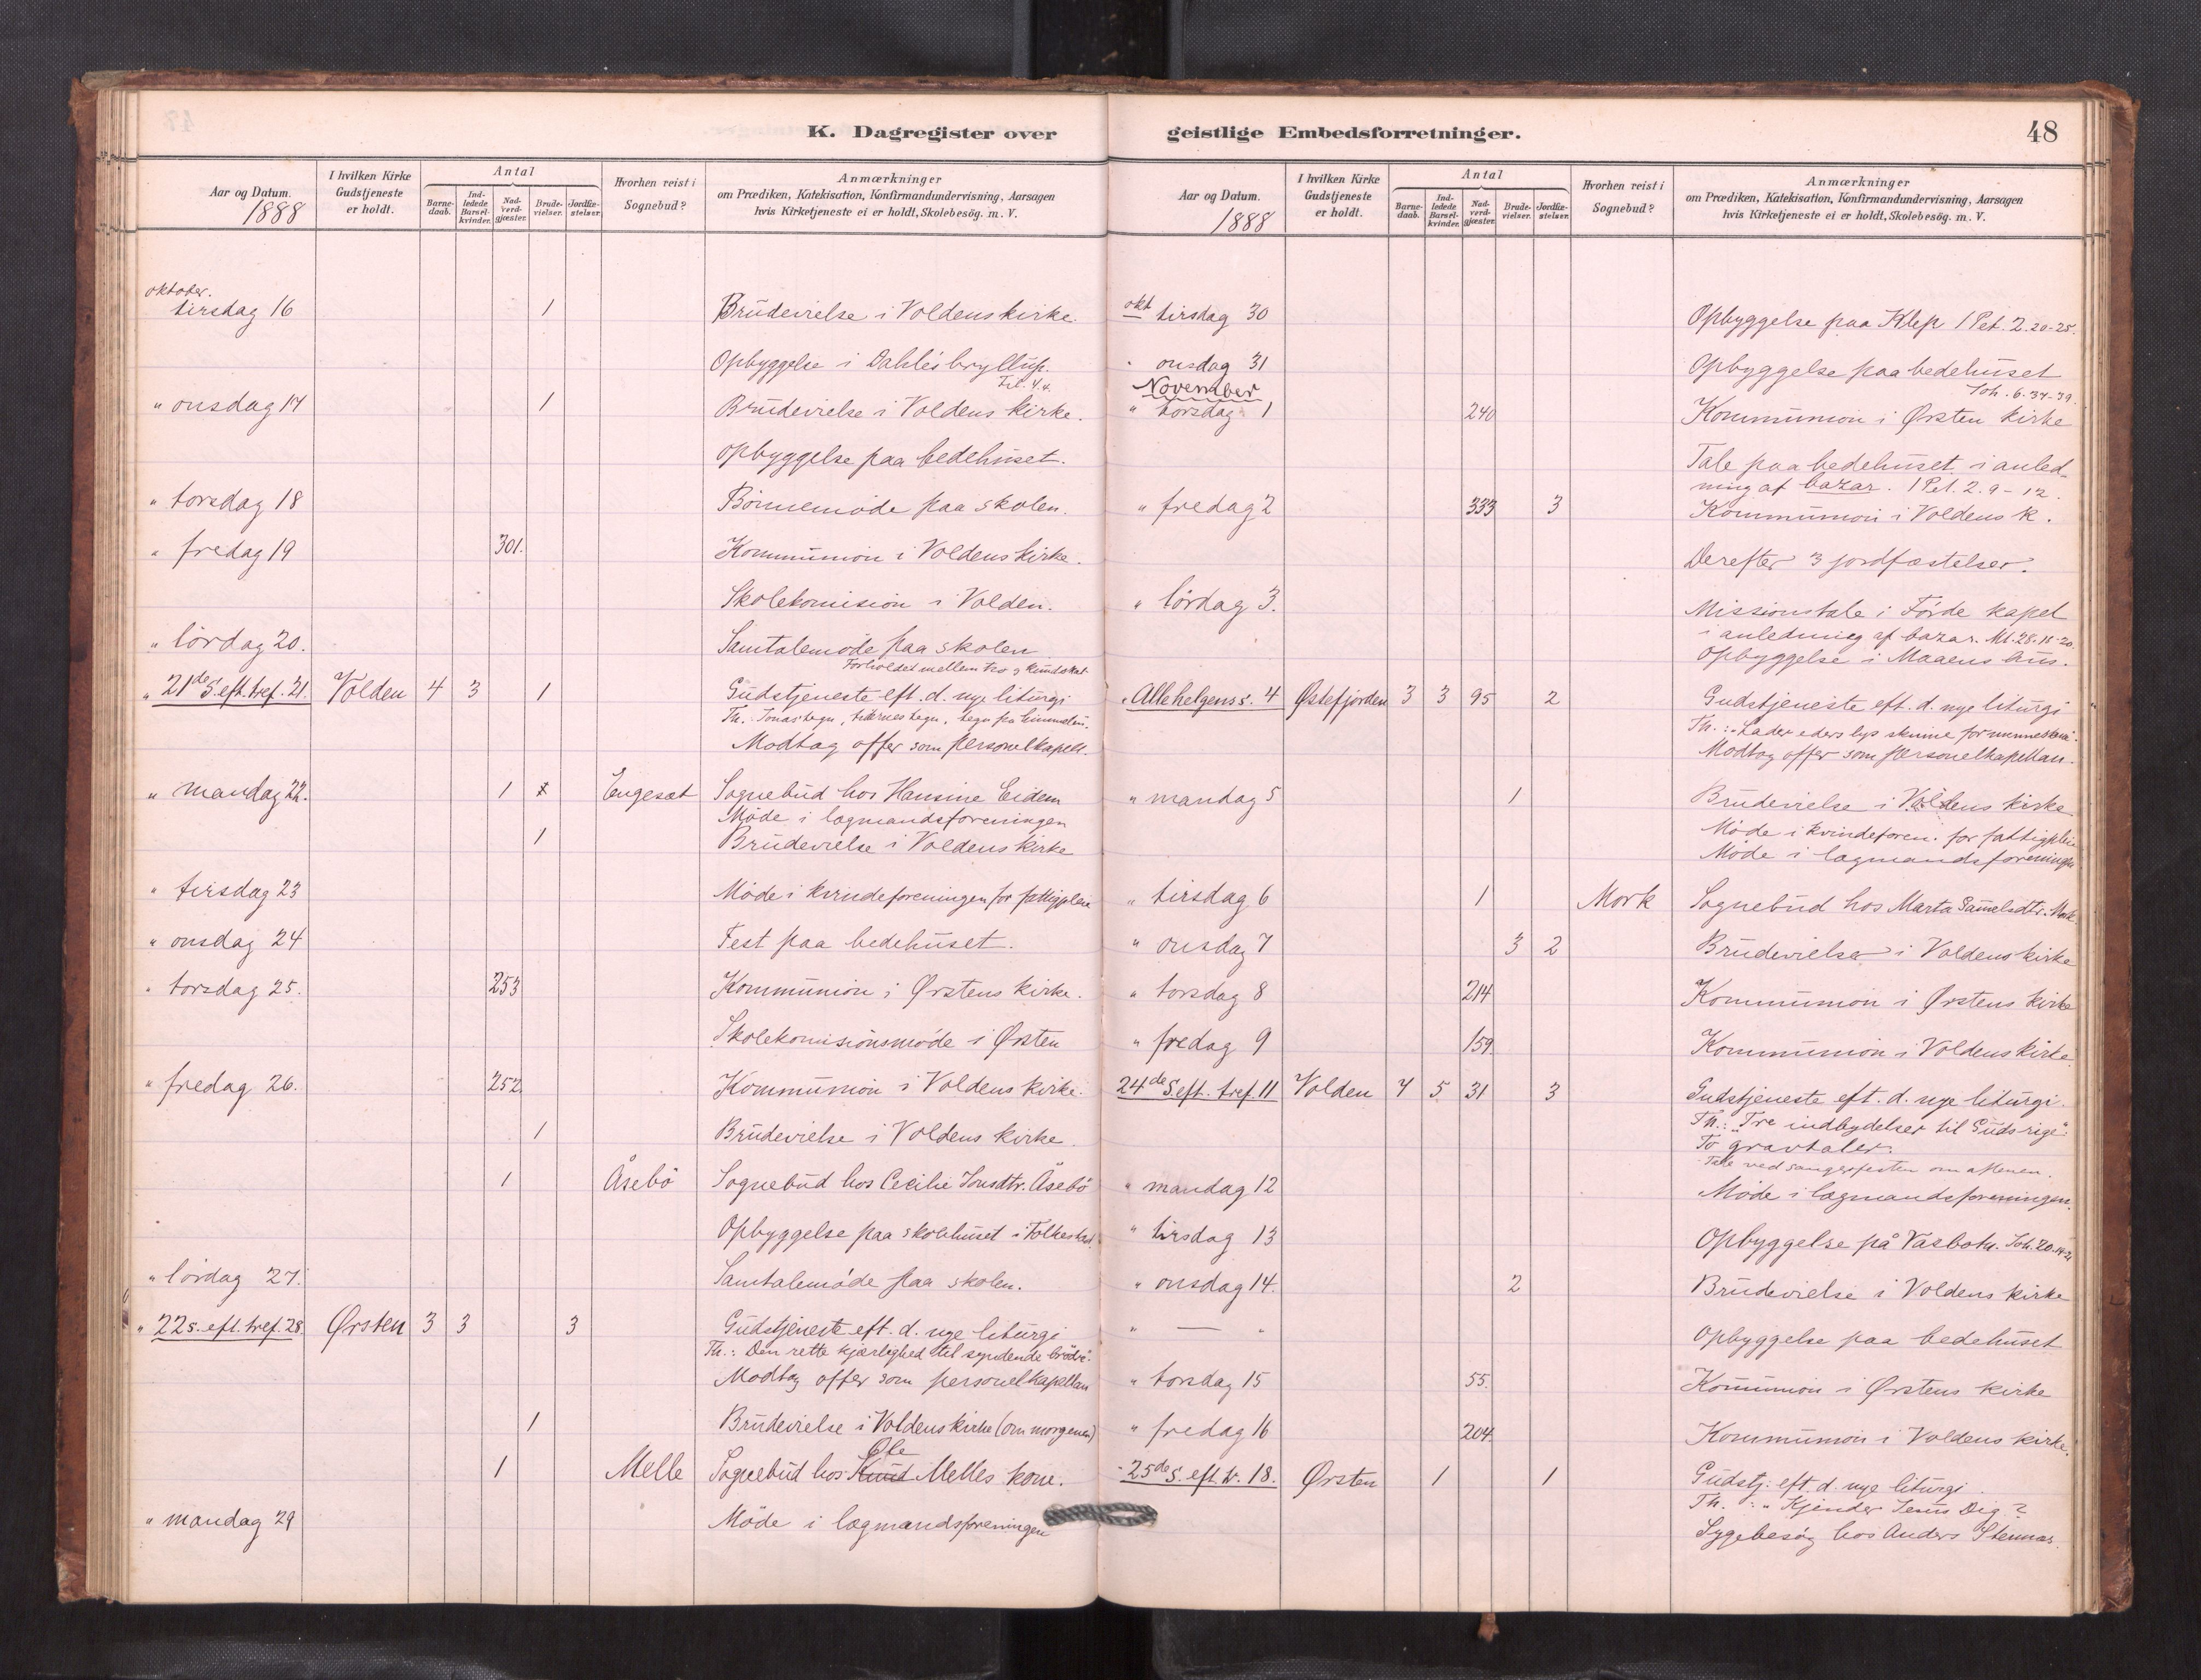 K. Dagregister over
Aar og Datum.
1888
I hvilken Kirke
Gudstjeneste
er holdt.
Antal
Barne-
daab.
Ind-
ledede
Barsel-
kvinder.
Nad-
verd-
gjæster.
Brude-
vielser.
Jordfæ-
stelser.
Hvorhen reist i
Sognebud?
Anmærkninger
om Prædiken, Katekisation, Konfirmandundervisning, Aarsagen
hvis Kirketjeneste ei er holdt, Skolebesög. m. V.
oktober.
tirsdag 16 1 Brudevielse i Voldens kirke.
Opbyggelse i Dahles bryllup.
Fil. 4.4.
" onsdag 17 1 Brudevielse i Voldens kirke.
Opbyggelse paa bedehuset.
" torsdag 18 Börnemöde paa skolen.
" fredag 19 301. Kommunion i Voldens kirke.
Skolekomision i Volden.
" lördag 20. Samtalemöde paa skolen
Forholdet mellem tro og kundskab
" 21de S. eft. tref. 21. Volden 4 3 1 Gudstjeneste eft. d. nye liturgi
Th. Jonas tegn, tidernes tegn, tegn fra himmelen.
Modtog offer som personelkapell.
" mandag 22. 1 Engeset Sognebud hos Hansine Eidem
Möde i lægmandsforeningen
1 Brudevielse i Voldens kirke
" tirsdag 23 Möde i kvindeforeningen for fattigpleie
" onsdag 24 Fest paa bedehuset.
" torsdag 25. 253 Kommunion i Ørstens kirke.
Skolekomisionsmöde i Ørsten
" fredag 26. 252. Kommunion i Voldens kirke.
1 Brudevielse i Voldens kirke.
1 Åsebö Sognebud hos Cecilie Jonsdtr. Åsebö
Opbyggelse paa skolehuset i Folkestad.
" lördag 27. Samtalemöde paa skolen.
" 22 s. eft. tref. 28 Ørsten 3 3 3 Gudstjeneste eft. d. nye liturgi
Th.: Den rette kjærlighed til syndende brödre.
Modtog offer som personelkapellan
1 Brudevielse i Voldens kirke (om morgenen)
Ole
1 Melle Sognebud hos Knud Melles kone.
" mandag 29 Möde i lægmandsforeningen
geistlige Embedsforretninger.
48
Aar og Datum.
1888
I hvilken Kirke
Gudstjeneste
er holdt.
Antal
Barne-
daab.
Ind-
ledede
Barsel-
kvinder.
Nad-
verd-
gjæster.
Brude-
vielser.
Jordfæ-
stelser.
Hvorhen reist i
Sognebud?
Anmærkninger
om Prædiken, Katekisation, Konfirmandundervisning, Aarsagen
hvis Kirketjeneste ei er holdt, Skolebesög. m. V.
okt tirsdag 30 Opbyggelse paa Klep 1 Pet. 2. 20-25.
" onsdag 31 Opbyggelse paa bedehuset
Joh. 6. 34-39.
November
" torsdag 1 240 Kommunion i Ørsten kirke
Tale paa bedehuset i anled-
ning af bazar. 1 Pet. 2. 9-12.
" fredag 2 333 3 Kommunion i Voldens k.
Derefter 3 jordfæstelser.
" lördag 3. Missionstale i Förde kapel
i anledning af bazar. Mt. 28. 18-20
Opbyggelse i Maaens hus.
" Allehelgens s. 4 Østefjorden 3 3 95 2 Gudstjeneste eft. d. nye liturgi
Th.: Lader eders lys skinne for menneskene.
Modtog offer som personelkapellan.
" mandag 5 1 Brudevielse i Voldens kirke
Möde i kvindeforen. for fattigpleie
Möde i lægmandsforeningen
" tirsdag 6 1 Mork Sognebud hos Marta Samelsdtr. Mork
" onsdag 7 3 2 Brudevielser i Voldens kirke
" torsdag 8 214 Kommunion i Ørstens kirke
" fredag 9 159 Kommunion i Voldens kirke
24de S. eft. tref. 11 Volden 4 5 31 3 Gudstjeneste eft. d. nye liturgi.
Th.: "Tre indbydelser til Guds rige".
To gravtaler.
Tale ved sangerfesten om aftenen.
" mandag 12 Möde i lægmandsforeningen.
" tirsdag 13 Opbyggelse på Vasbotn. Joh. 20.
" onsdag 14. 2 Brudevielse i Voldens kirke
" — " Opbyggelse paa bedehuset
" torsdag 15 55. Kommunion i Ørstens kirke
" fredag 16 204. Kommunion i Voldens kirke.
" 25de S. eft. tr. 18. Ørsten 1 1 Gudstj. eft. d. nye liturgi.
Th.: " Kjender Jesus Dig?
Sygebesög hos Anders Stennes.